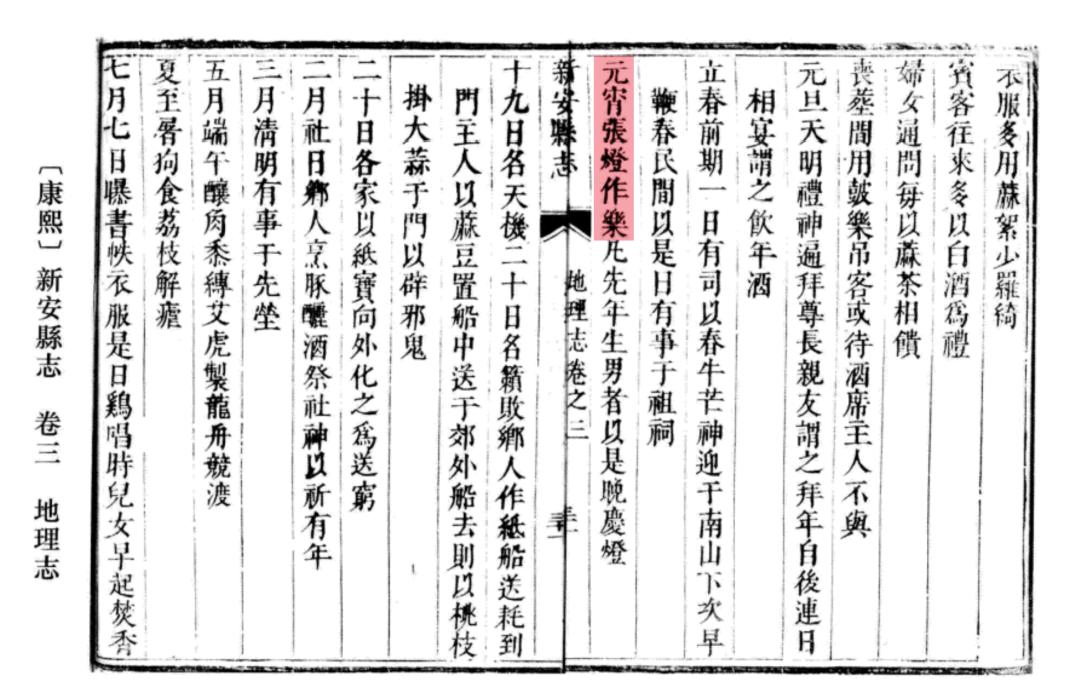 衣服多用蔴絮少羅綺
賓客往來多以白酒爲禮
婦女通問每以蔴茶相饋
喪塟間用皷樂吊客或待酒席主人不與
元旦天明禮神遍拜尊長親友謂之拜年自後連日
相宴謂之飲年酒
立春前期一日有司以春牛芒神迎于南山下次早
鞭春民間以是日有事于祖祠
元宵張燈作樂凢先年生男者以是晚慶燈
新安縣志
地理志卷之三
十九日名天機二十日名籟敗鄉人作紙船送耗到
門主人以蔴豆置船中送于郊外船去則以桃枝
掛大蒜于門以辟邪鬼
二十日各家以紙寶向外化之爲送窮
二月社日鄉人烹豚釃酒祭社神以祈有年
三月清明有事于先塋
五月端午釀角黍縛艾虎製龍舟競渡
夏至屠狗食荔枝解瘧
七月七日曝書帙衣服是日鷄唱時兒女早起焚香
〔康熙〕新安縣志 卷三 地理志